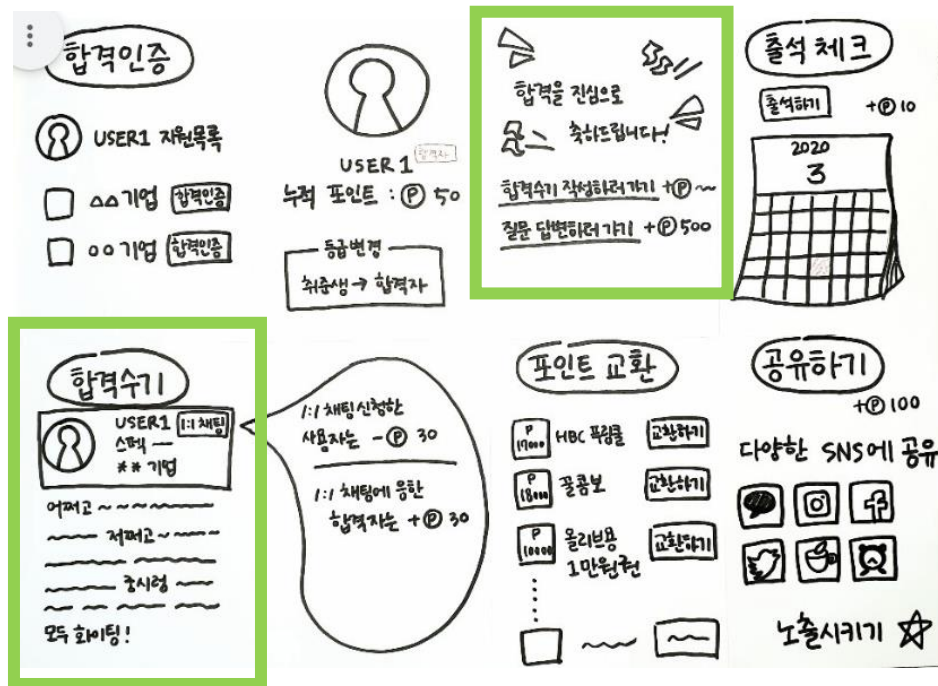 합격인증
USER1 지원목록
△△기업 합격인증
○○기업 합격인증
USER1 합격자
누적 포인트 : Ⓟ 50
등급변경
취준생 → 합격자
합격을 진심으로
축하드립니다!
합격수기 작성하러가기 +Ⓟ~
질문 답변하러가기 +Ⓟ500
출석 체크
출석하기 +Ⓟ10
2020
3
합격수기
USER1 1:1 채팅
스펙 —
** 기업
어쩌고 ~
저쩌고 ~
중시렁 ~
모두 화이팅!
1:1 채팅신청한
사용자는 -Ⓟ 30
1:1 채팅에 응한
합격자는 +Ⓟ 30
포인트 교환
P 17000 HBC 푸링클 교환하기
P 18000 꿀콤보 교환하기
P 10000 올리브용 1만원권 교환하기
공유하기
+Ⓟ100
다양한 SNS에 공유
노출시키기 ☆